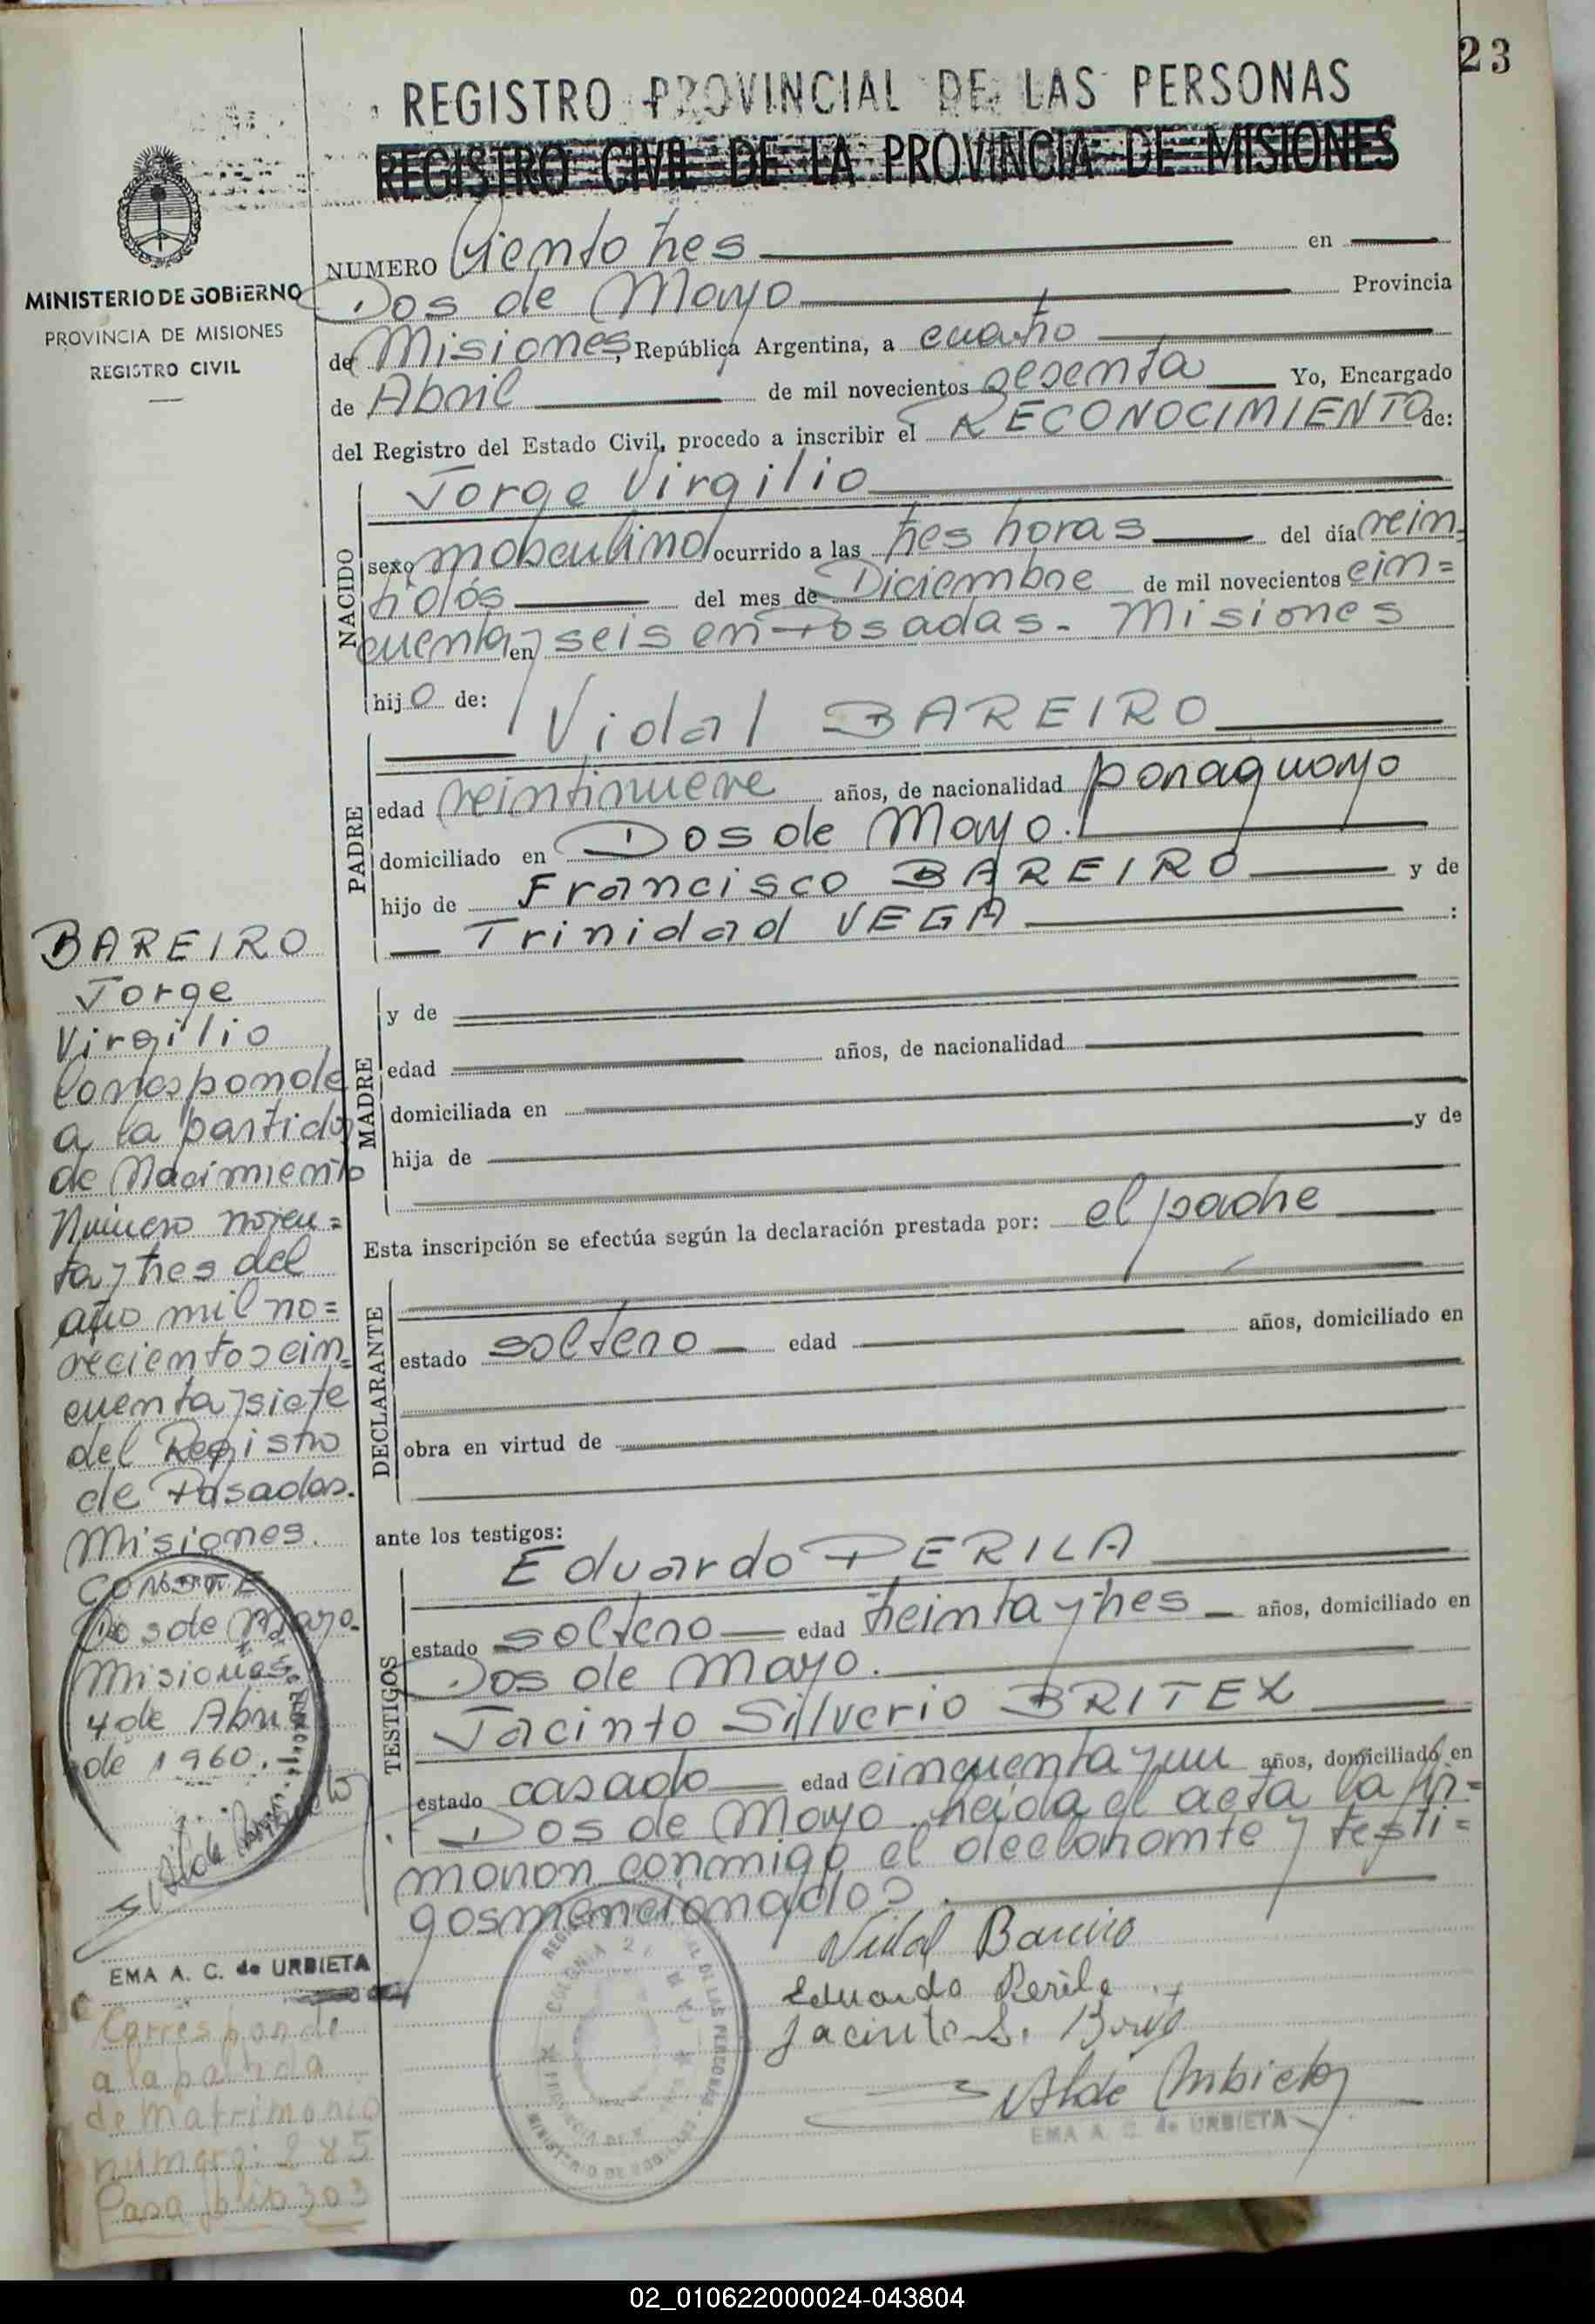 23
REGISTRO PROVINCIAL DE LAS PERSONAS
REGISTRO CIVIL DE LA PROVINCIA DE MISIONES
MINISTERIO DE GOBIERNO
PROVINCIA DE MISIONES
REGISTRO CIVIL
NUMERO Ciento tres en
Dos de Mayo Provincia
de Misiones, República Argentina, a cuatro
de Abril de mil novecientos sesenta Yo, Encargado
del Registro del Estado Civil, procedo a inscribir el RECONOCIMIENTO de:
NACIDO
Jorge Virgilio
sexo masculino ocurrido a las tres horas del día vein=
tidós del mes de Diciembre de mil novecientos cin=
cuenta y seis en Posadas - Misiones
hijo de:
PADRE
Vidal BAREIRO
edad veintinueve años, de nacionalidad paraguayo
domiciliado en Dos de Mayo.
hijo de Francisco BAREIRO y de
Trinidad VEGA :
MADRE
y de
edad años, de nacionalidad
domiciliada en
hija de y de
Esta inscripción se efectúa según la declaración prestada por: el padre
DECLARANTE
estado soltero edad años, domiciliado en
obra en virtud de
ante los testigos:
TESTIGOS
Eduardo PERILA
estado soltero edad treinta y tres años, domiciliado en
Dos de Mayo.
Jacinto Silverio BRITEX
estado casado edad cincuenta y un años, domiciliado en
Dos de Mayo. Leida el acta la fir=
maron conmigo el declarante y testi=
gos mencionados.
Vidal Bareiro
Eduardo Perila
Jacinto S.
Urbieta
EMA A. C. de URBIETA
BAREIRO
Jorge
Virgilio
Corresponde
a la partida
de Nacimiento
Número noven=
ta y tres del
año mil no=
vecientos cin=
cuenta y siete
del Registro
de Posadas.
Misiones.
CONSTE
Dos de Mayo.
Misiones
4 de Abril
de 1960.
EMA A. C. de URBIETA
Corresponde
a la partida
de Matrimonio
numero: 285
Pasa folio 303
02_010622000024-043804